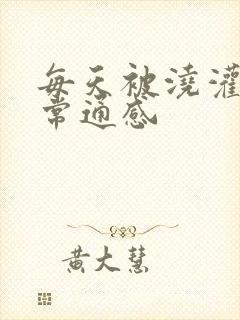 每天被浇灌
常通感
黄大慧